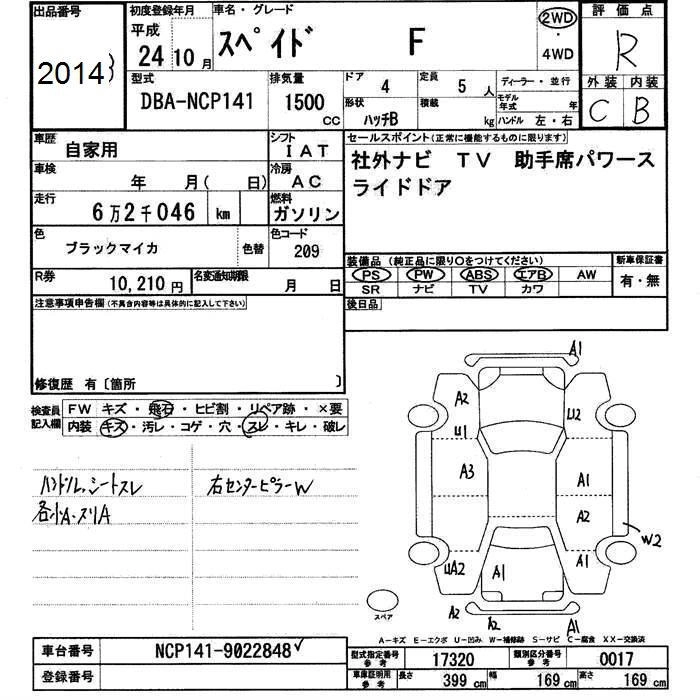 出品番号 初度登録年月 車名・グレード 評価点
2014 平成 24 10月 スペイド F 2WD ・ 4WD R
型式 排気量 ドア 定員 ディーラー・並行 外装 内装
DBA-NCP141 1500 CC 4 5人 モデル年式 年 C B
形状 ハッチB 積載 kg ハンドル 左・右
車歴 自家用 シフト IAT セールスポイント(正常に機能するものに限ります)
車検 年 月( 日) 冷房 AC 社外ナビ TV 助手席パワース
走行 6万2千046 km 燃料 ガソリン ライドドア
色 ブラックマイカ 色替 色コード 209
装備品 (純正品に限り○をつけてください) 新車保証書
R券 10,210円 名変通知期限 月 日 PS PW ABS エアB AW 有・無
SR ナビ TV カワ
注意事項申告欄(不具合内容等は具体的に記入して下さい) 後日品
修復歴 有〔箇所 〕
検査員記入欄 FW キズ・飛石・ヒビ割・リペア跡・×要
内装 キズ・汚レ・コゲ・穴・スレ・キレ・破レ
ハンドル、シートスレ 右センターピラーW
各小A・スリA
A1
A2 U2
U1
A3 A1
A2
W2
UA2 A1 A1
スペア A2 A2 A1
A-キズ E-エクボ U-凹み W-補修跡 S-サビ C-腐食 XX-交換済
車台番号 NCP141-9022848 型式指定番号 参考 17320 類別区分番号 参考 0017
登録番号 車庫証明用 参考 長さ 399 cm 幅 169 cm 高さ 169 cm